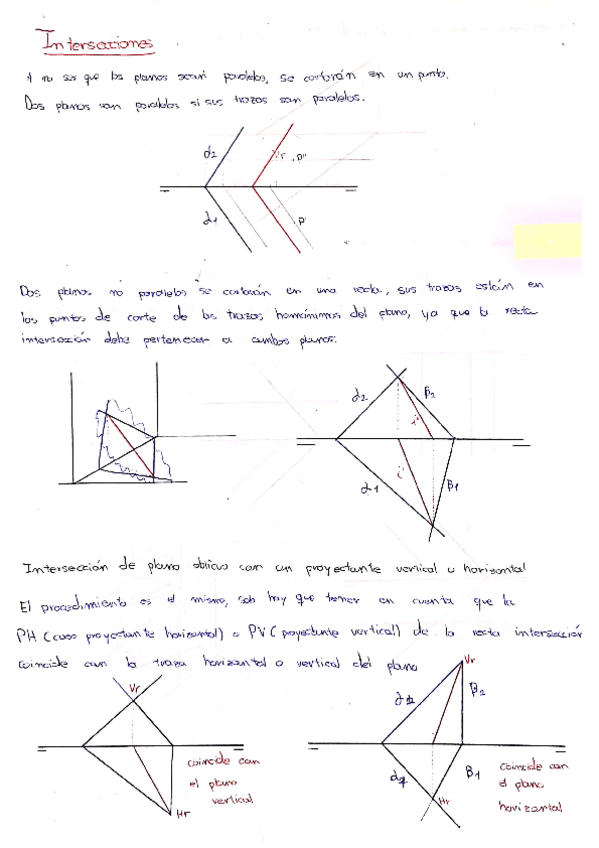 Intersecciones
A no ser que los planos sean paralelos, se cortarán en un punto.
Dos planos son paralelos si sus trazas son paralelos.
α2
Vr
P''
α1
P'
Dos planos no paralelos se cortarán en una recta, sus trazas están en
los puntos de corte de las trazas homónimas del plano, ya que la recta
intersección debe pertenecer a ambos planos.
α2
β2
i''
i'
α1
β1
Intersección de plano oblicuo con un proyectante vertical u horizontal
El procedimiento es el mismo, solo hay que tener en cuenta que la
PH (caso proyectante horizontal) o PV (proyectante vertical) de la recta intersección
coincide con la traza horizontal o vertical del plano
Vr
coincide con
el plano
vertical
Hr
Vr
β2
β1
Hr
Coincide con
el plano
horizontal